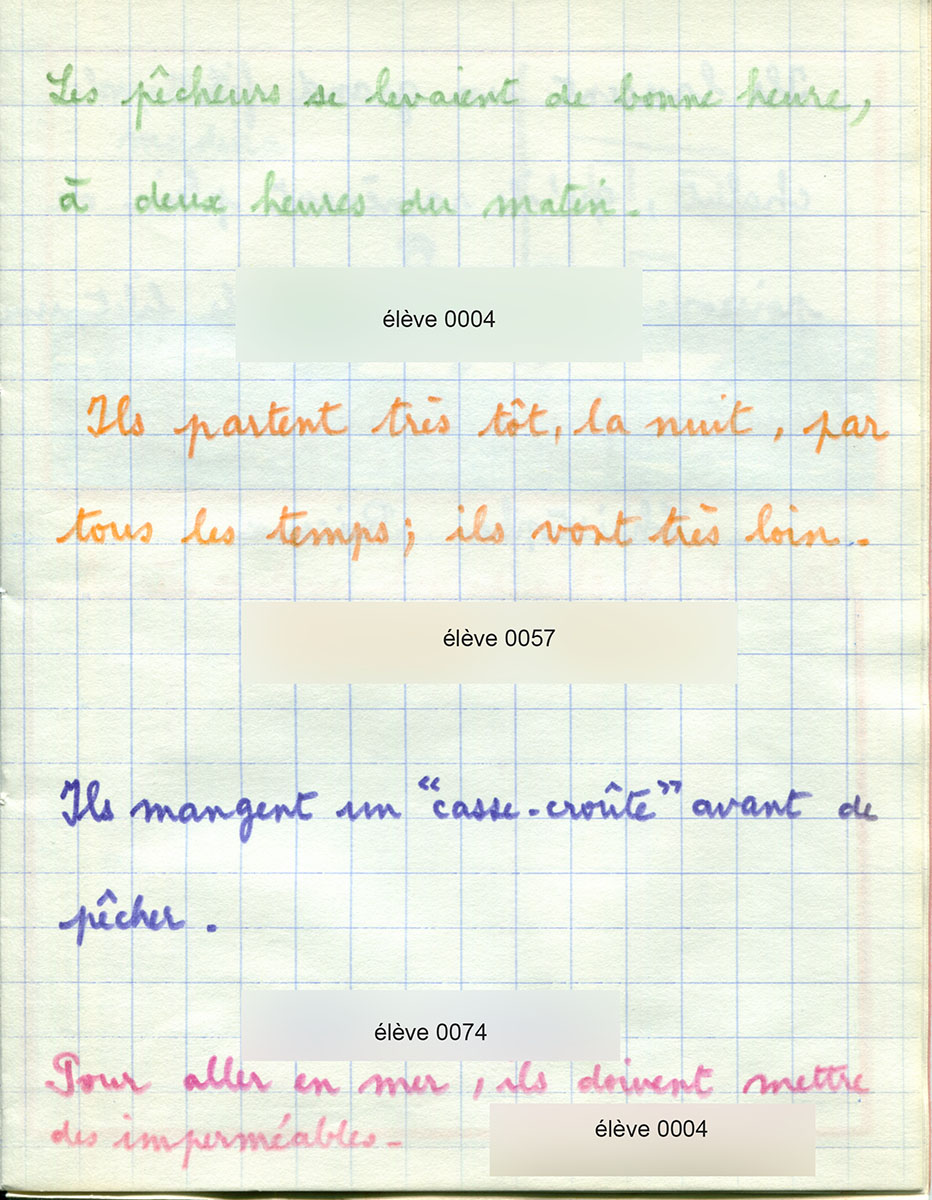 Les pêcheurs se levaient de bonne heure,
à deux heures du matin.
élève 0004
Ils partent très tôt, la nuit, par
tous les temps; ils vont très loin.
élève 0057
Ils mangent un “casse-croûte” avant de
pêcher.
élève 0074
Pour aller en mer, ils doivent mettre
des imperméables.
élève 0004